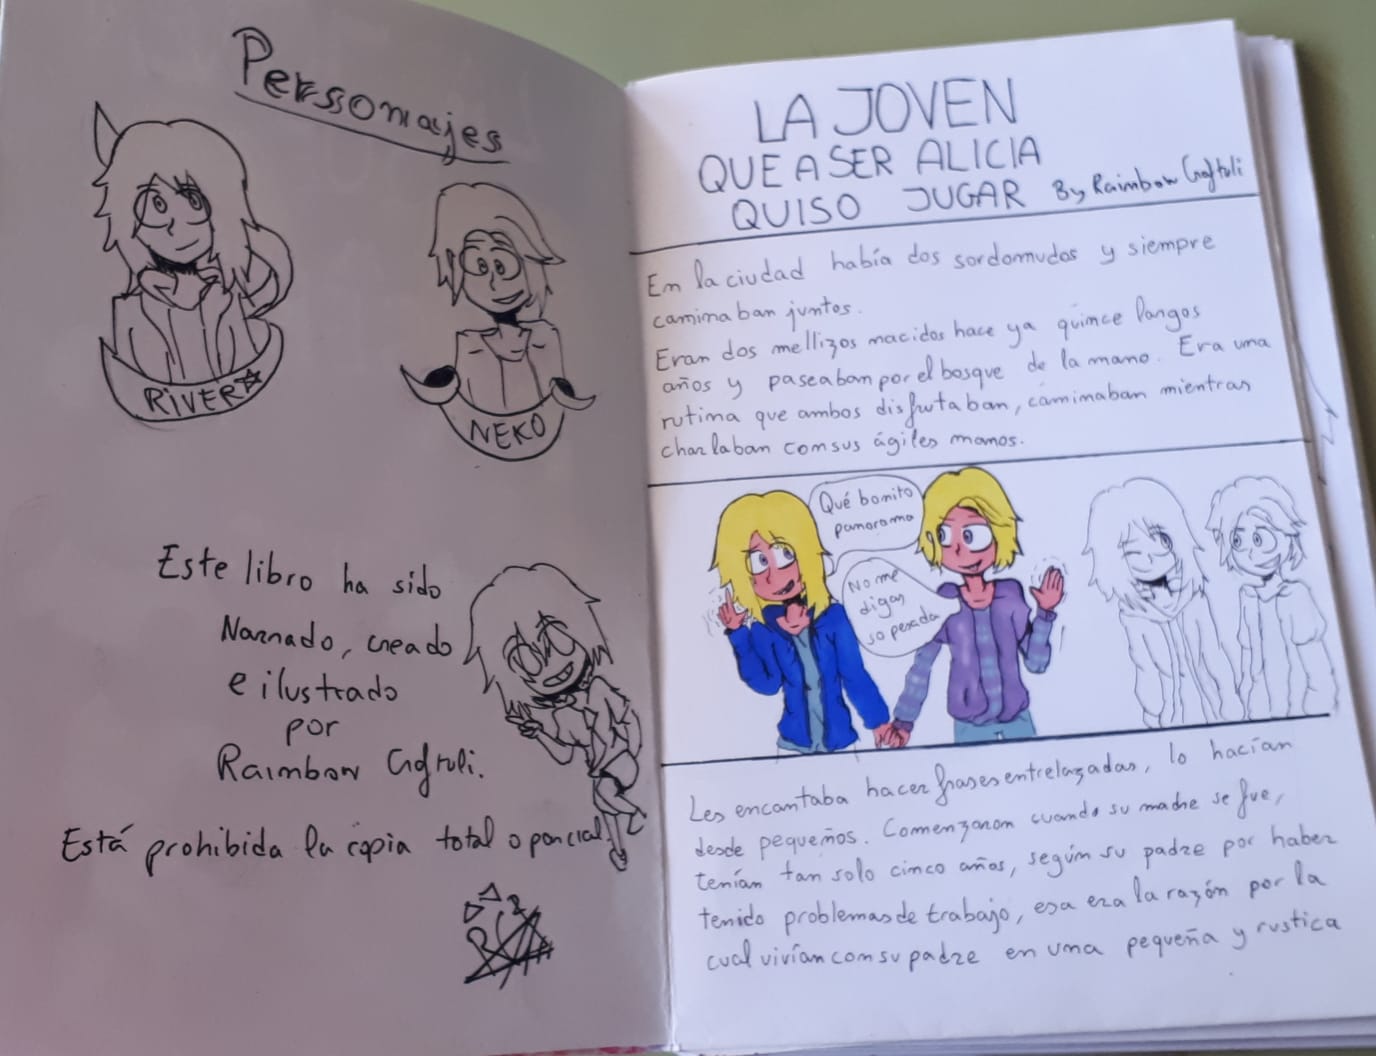 Personajes
RIVER
NEKO
Este libro ha sido
Narrado, creado
e ilustrado
por
Rainbow
Está prohibida la copia total o parcial.
LA JOVEN
QUE A SER ALICIA
QUISO JUGAR By Rainbow
En la ciudad había dos sordomudos y siempre
caminaban juntos.
Eran dos mellizos nacidos hace ya quince largos
años y paseaban por el bosque de la mano. Era una
rutina que ambos disfrutaban, caminaban mientras
charlaban con sus ágiles manos.
Qué bonito
panorama
No me
digas
so pesada
Les encantaba hacer frases entrelazadas, lo hacían
desde pequeños. Comenzaron cuando su madre se fue,
tenían tan solo cinco años, según su padre por haber
tenido problemas de trabajo, esa era la razón por la
cual vivían con su padre en una pequeña y rustica